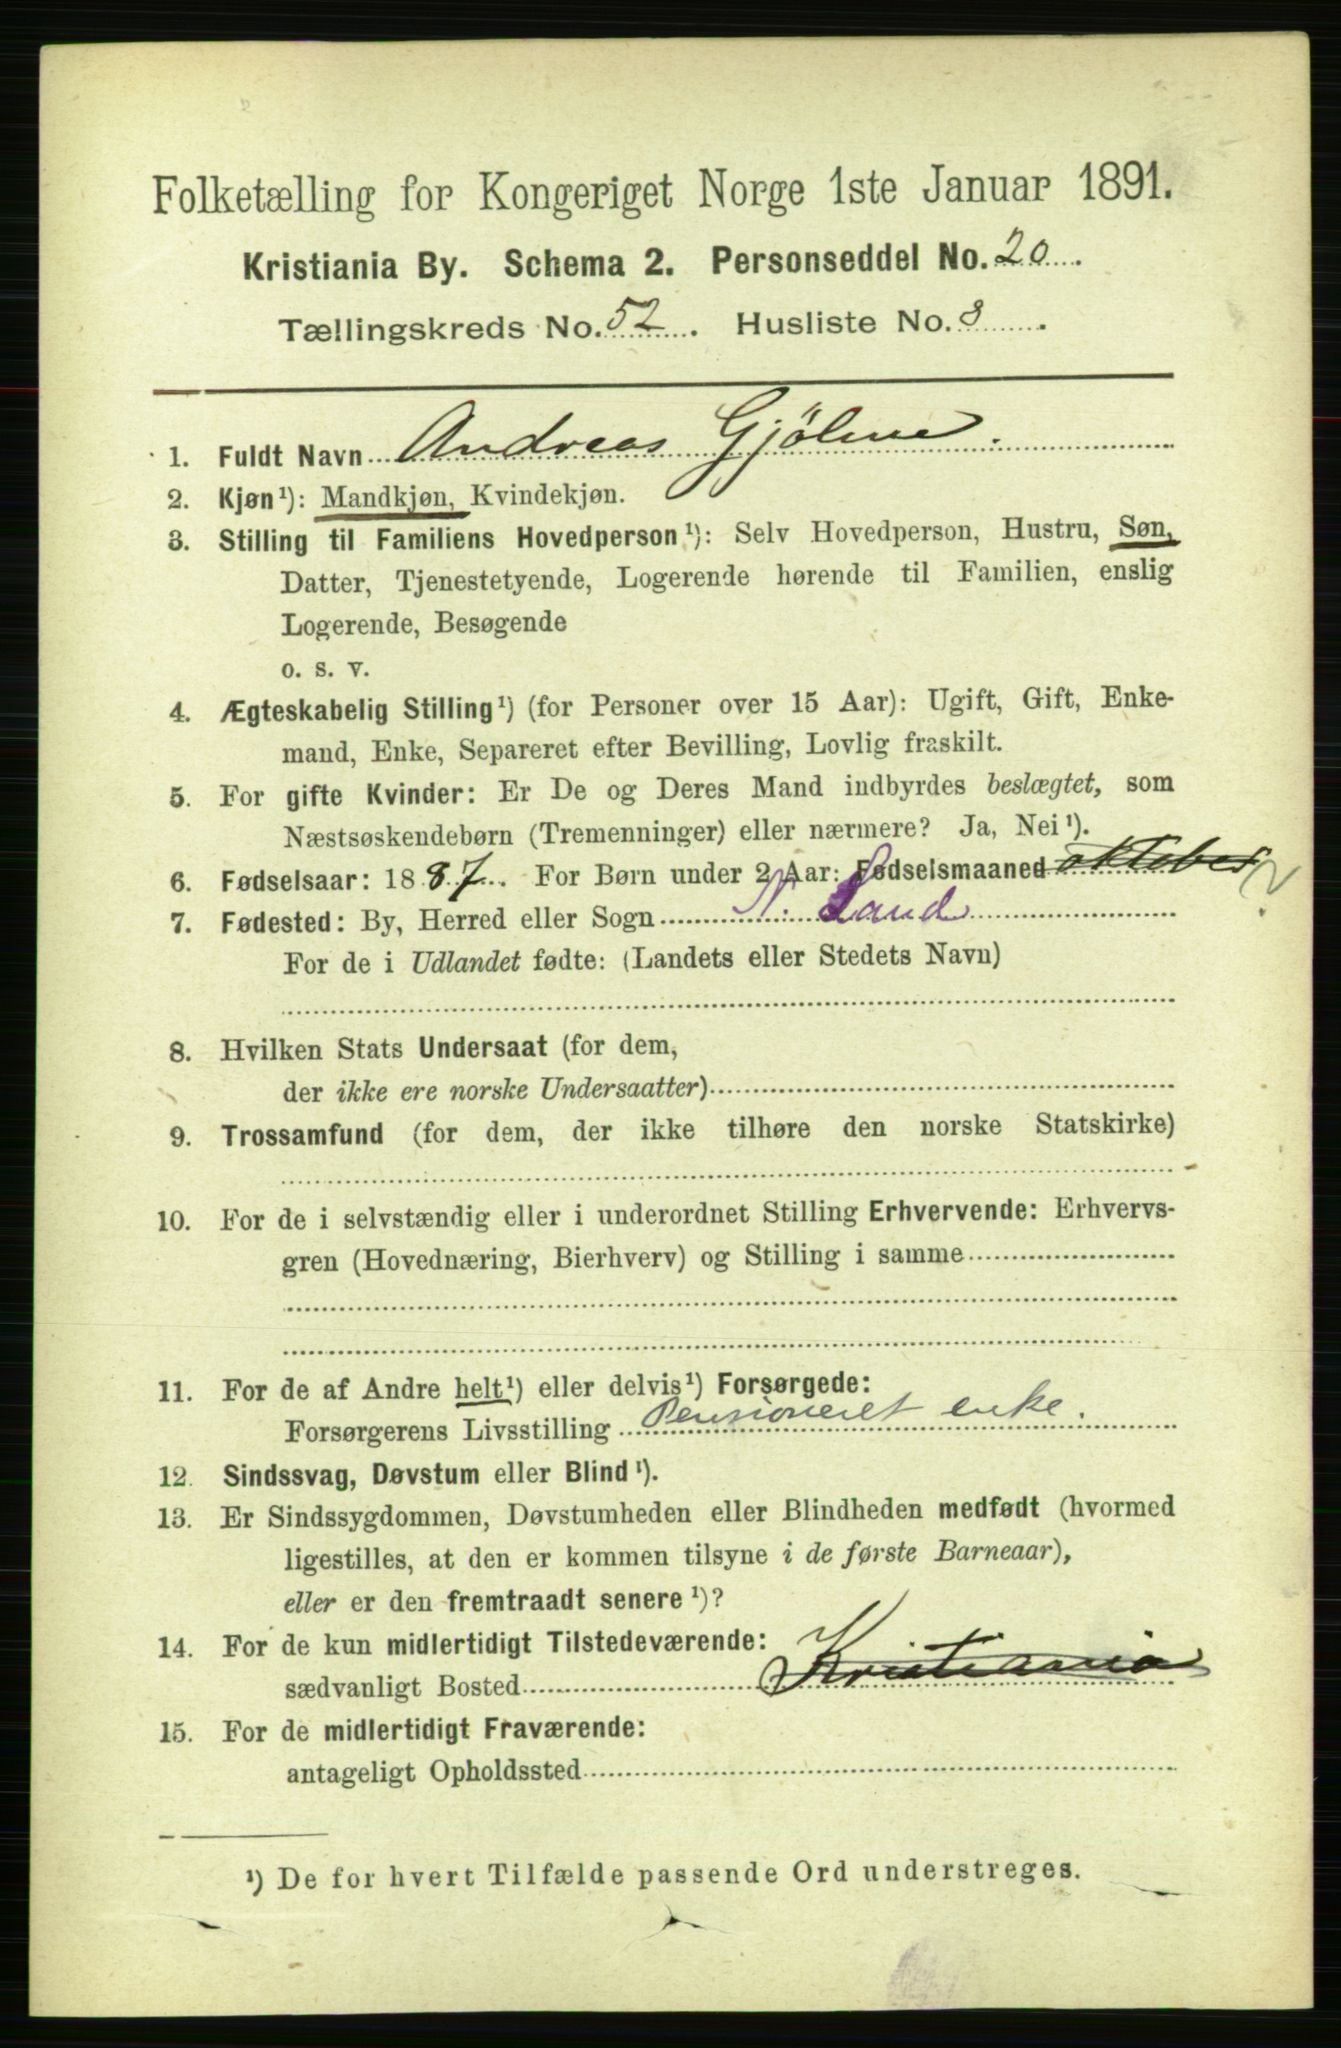 Folketælling for Kongeriget Norge 1ste Januar 1891.
Kristiania By. Schema 2. Personseddel No. 20.
Tællingskreds No. 52. Husliste No. 8.
1. Fuldt Navn Andreas Gjölme.
2. Kjøn¹): Mandkjøn, Kvindekjøn.
3. Stilling til Familiens Hovedperson¹): Selv Hovedperson, Hustru, Søn,
Datter, Tjenestetyende, Logerende hørende til Familien, enslig
Logerende, Besøgende
o. s. v.
4. Ægteskabelig Stilling¹) (for Personer over 15 Aar): Ugift, Gift, Enke-
mand, Enke, Separeret efter Bevilling, Lovlig fraskilt.
5. For gifte Kvinder: Er De og Deres Mand indbyrdes beslægtet, som
Næstsøskendebørn (Tremenninger) eller nærmere? Ja, Nei¹).
6. Fødselsaar: 1887. For Børn under 2 Aar: Fødselsmaaned oktober ?
7. Fødested: By, Herred eller Sogn N. Land
For de i Udlandet fødte: (Landets eller Stedets Navn)
8. Hvilken Stats Undersaat (for dem,
der ikke ere norske Undersaatter)
9. Trossamfund (for dem, der ikke tilhøre den norske Statskirke)
10. For de i selvstændig eller i underordnet Stilling Erhvervende: Erhvervs-
gren (Hovednæring, Bierhverv) og Stilling i samme
11. For de af Andre helt¹) eller delvis¹) Forsørgede:
Forsørgerens Livsstilling Pensioneret enke.
12. Sindssvag, Døvstum eller Blind¹).
13. Er Sindssygdommen, Døvstumheden eller Blindheden medfødt (hvormed
ligestilles, at den er kommen tilsyne i de første Barneaar),
eller er den fremtraadt senere¹)?
14. For de kun midlertidigt Tilstedeværende:
sædvanligt Bosted Kristiania
15. For de midlertidigt Fraværende:
antageligt Opholdssted
¹) De for hvert Tilfælde passende Ord understreges.